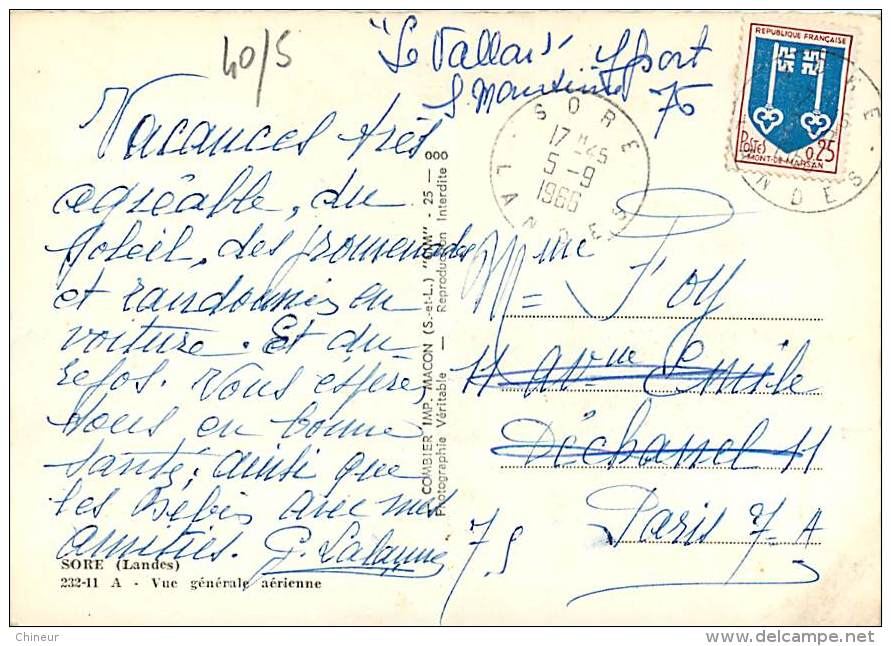 40/5
"Le Vallon" Yport
76
RÉPUBLIQUE FRANÇAISE
POSTES 0,25
MONT-DE-MARSAN
SORE
17 H 45
5 - 9
1966
LANDES
Vacances très
agréable, du
soleil, des promenades
et randonnées en
voiture. Et du
repos. Vous espère,
tous en bonne
santé, ainsi que
les bébés avec mes
amitiés. G. Lalanne
SORE (Landes)
232-11 A - Vue générale aérienne
COMBIER IMP. MACON (S.-et-L.) "CIM" - 25 - 000
Photographie Véritable — Reproduction Interdite
Mme Foy
11 Avnue Emile
Déchanel 11
Paris 7-A
75
Chineur
delcampe.net